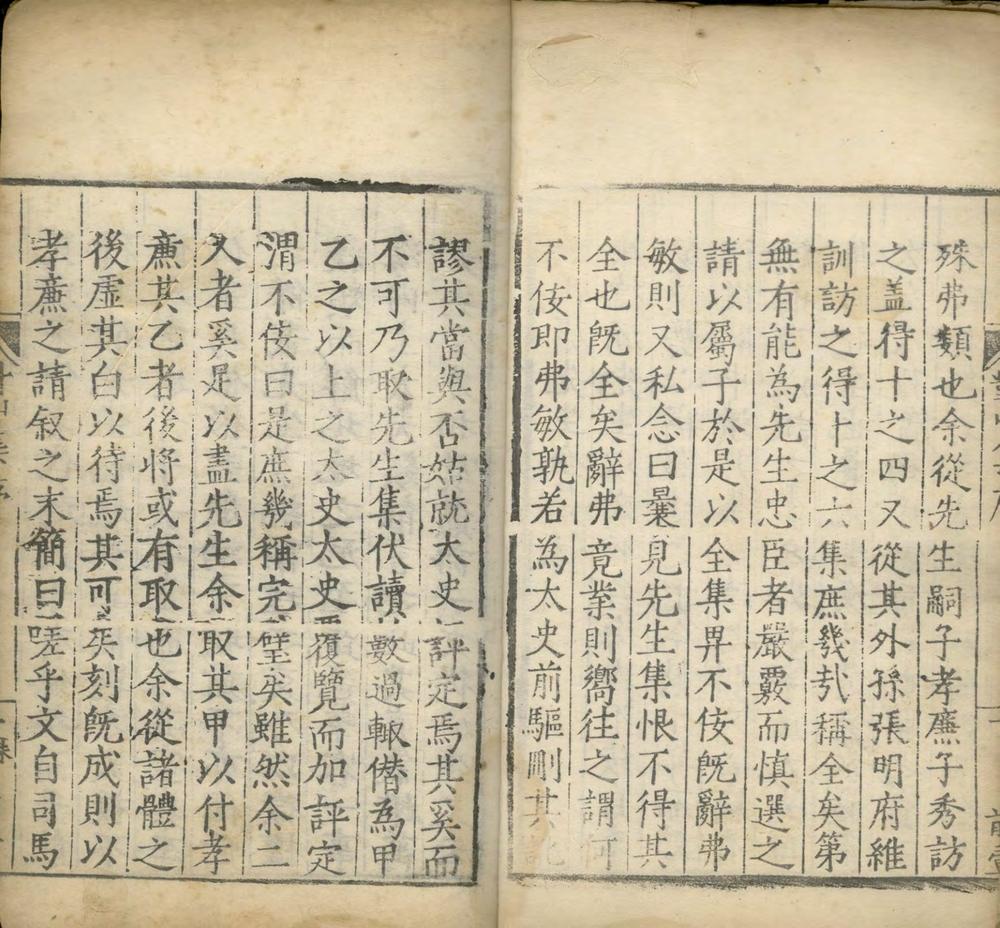 殊弗類也余從先生嗣子孝廉子秀訪
之盖得十之四又從其外孫張明府維
訓訪之得十之六集庶幾哉稱全矣第
無有能為先生忠臣者嚴覈而慎選之
請以屬子於是以全集畀不佞既辭弗
敏則又私念曰曩見先生集恨不得其
全也既全矣辭弗竟業則嚮往之謂何
不佞即弗敏孰若為太史前驅刪其
謬其當與否姑就太史評定焉其奚而
不可乃取先生集伏讀數過輙僭為甲
乙之以上之太史太史覆覽而加評定
謂不佞曰是庶幾稱完璧矣雖然余二
人者奚是以盡先生余取其甲以付孝
廉其乙者後將或有取也余從諸體之
後虛其白以待焉其可矣刻既成則以
孝廉之請叙之末簡曰嗟乎文自司馬